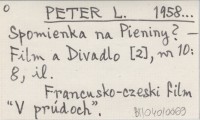 o PETER L. 1958...
Spomienka na Pieniny? -
Film a Divadlo [2], nr 10:
8, il.
Francusko-czeski film
"V prúdoch".